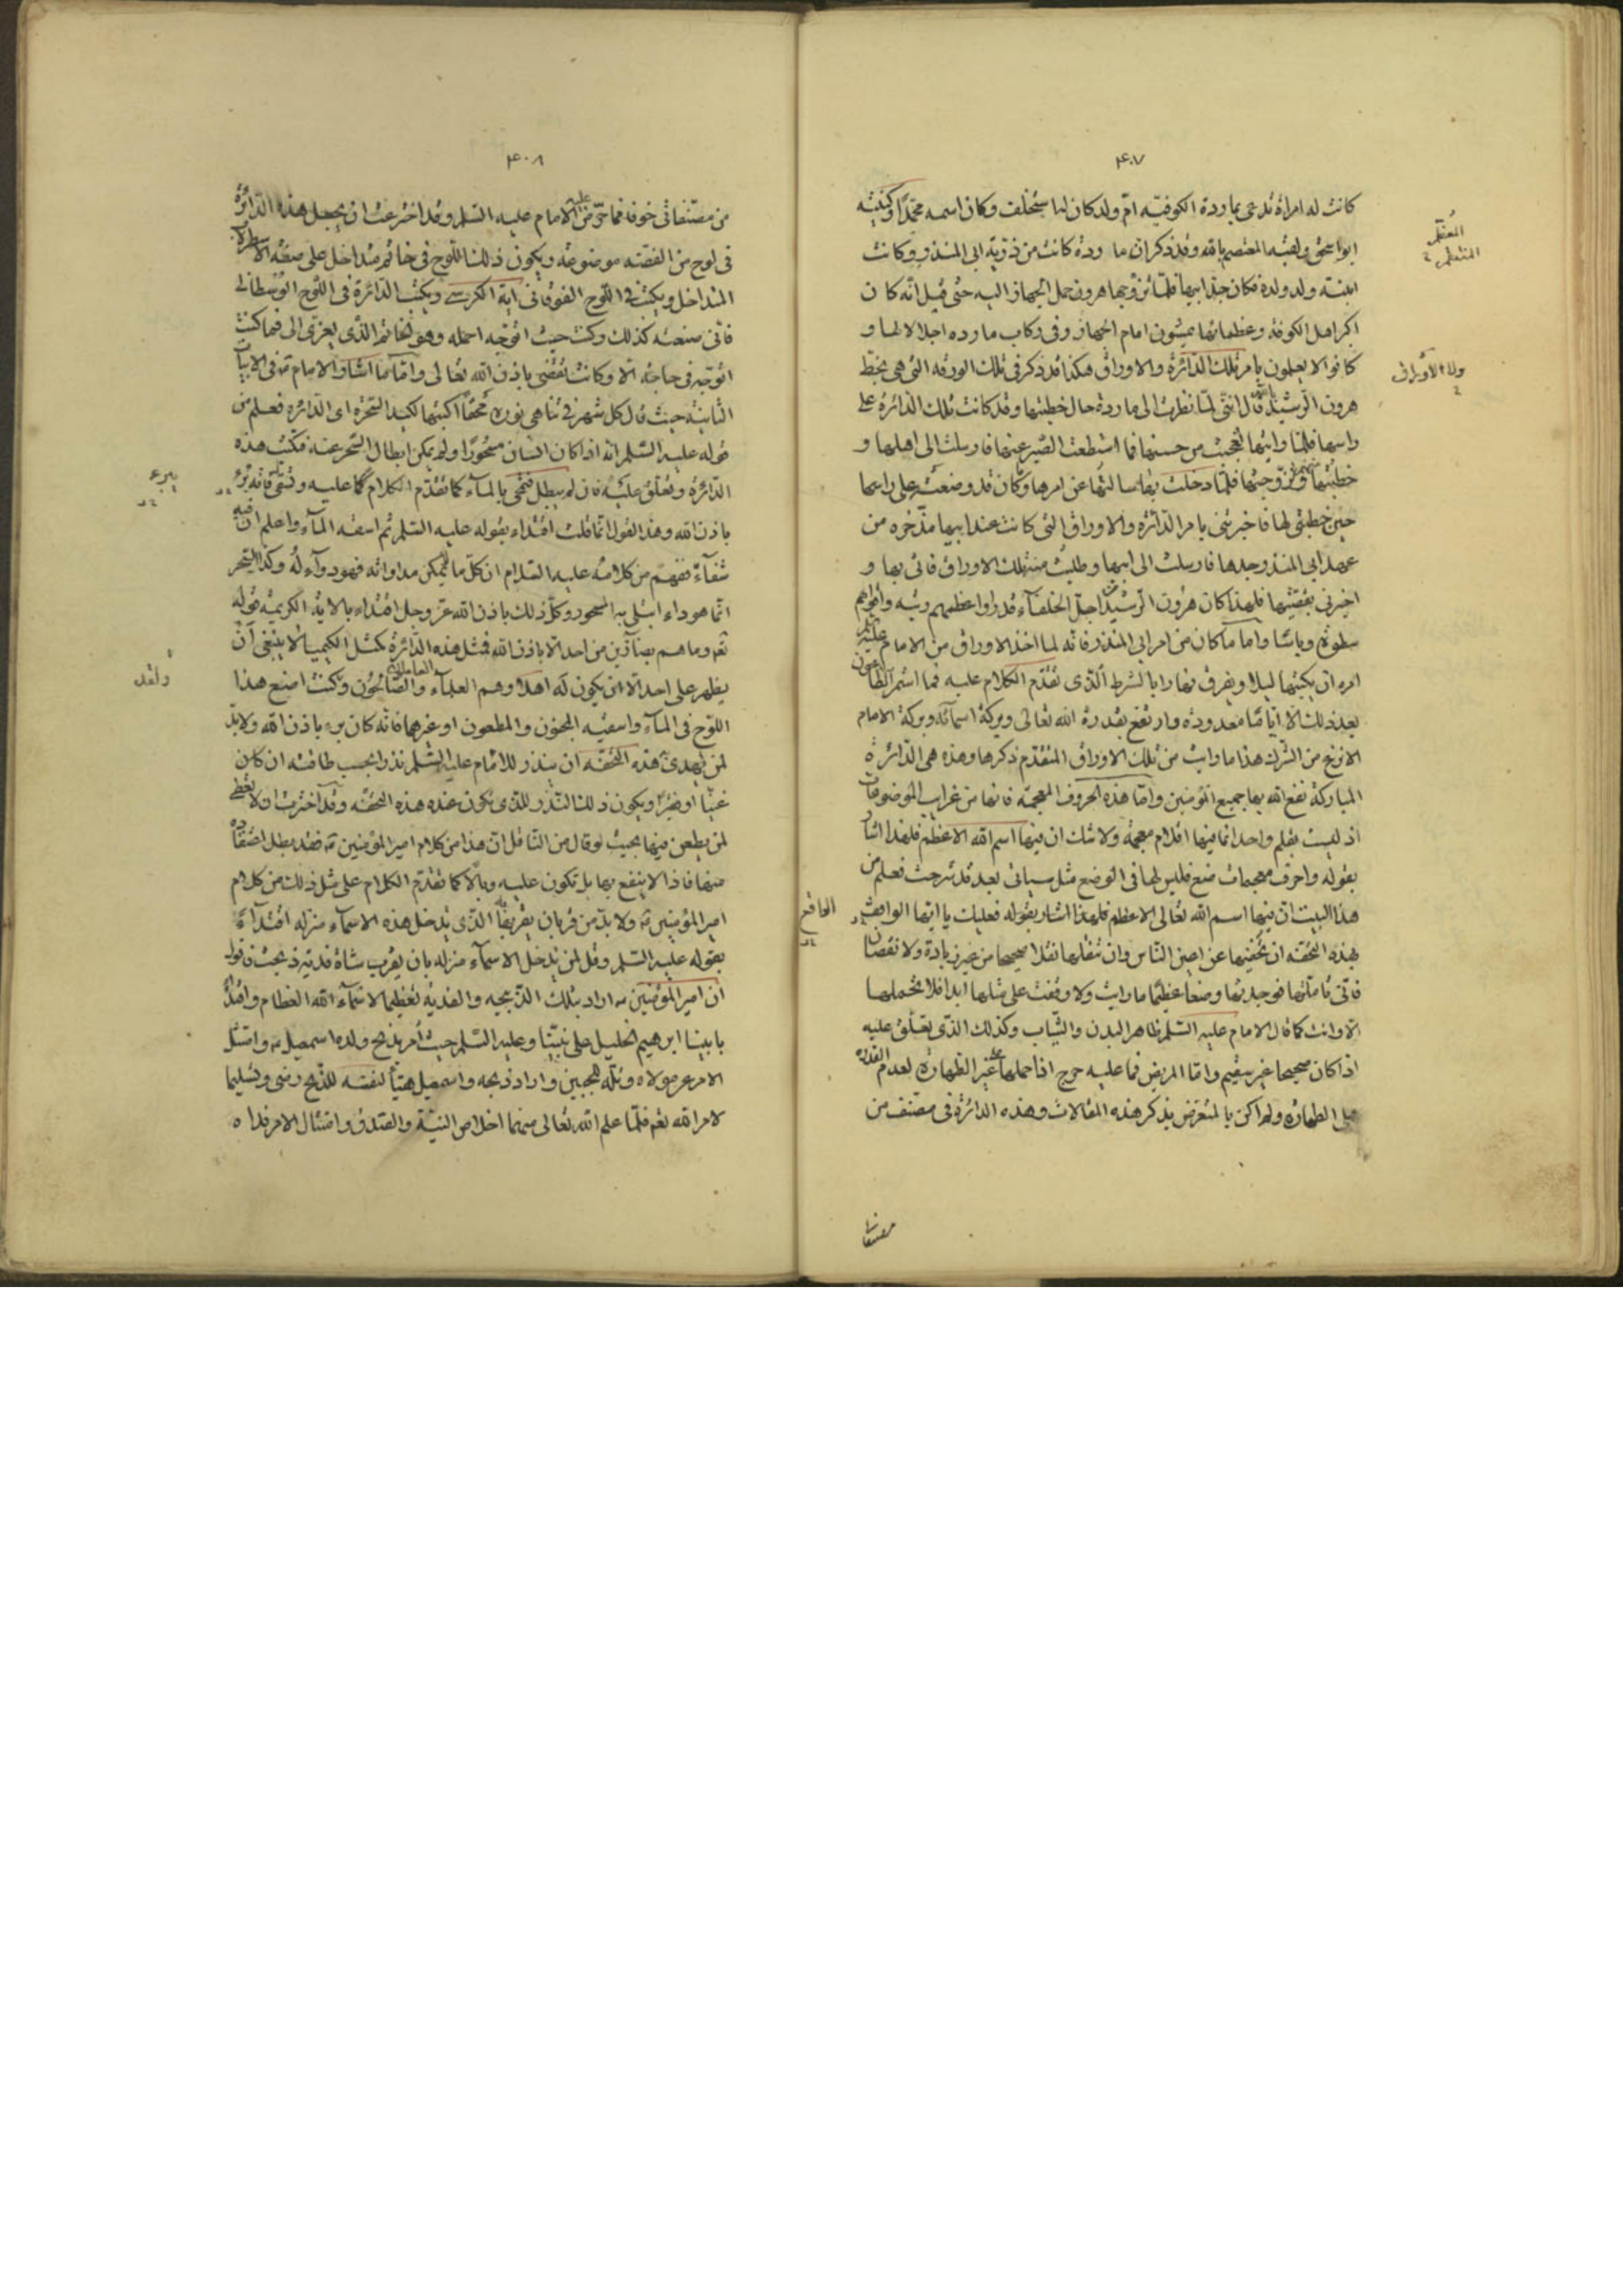 ٤٠٧
كانت له امراة تدعى بماردة الكوفيه ام ولد كان لها ستخلف وكان اسمه محمدا وكنيته
ابو اسحق ولقبه المعتصم بالله وقد ذكر ان ماردة كانت من ذرية ابى المنذر وكانت
ابنة ولد ولده فكان جدا ابيها فلما تزوجها هرون حمل الجهاز اليه حتى قيل انه كان
اكبر اهل الكوفة وعظمائها يمشون امام الجهاز وفى ركاب مارده اجلالا لها و
كانوا لا يعلمون بامر تلك الدائرة والاوراق هكذا قد ذكر فى تلك الورقه التى هى بخط
هرون الرشيد قال اننى لما نظرت الى ماردة حال خطبتها وقد كانت تلك الدائرة على
راسها فلما رايتها تعجبت من حسنها فما استطعت الصبر عنها فارسلت الى اهلها و
خطبتها وتزوجتها فلما دخلت بها سالتها عن امرها وكان قد وضعته على راسها
حين خطبتى لها فاخبرتنى بامر الدائره والاوراق التى كانت عند ابيها مدخره من
عهد ابى المنذر جدها فارسلت الى ابيها وطلبت منه تلك الاوراق فاتى بها و
اخبرنى بقصتها فلهذا كان هرون الرشيد اجل الخلفاء قدرا واعظمهم رتبه واقواهم
سطوة وباسا واما ما كان من امر ابى المنذر فانه لما اخذ الاوراق من الامام عليه السلم
امره ان يكتبها ليلا ويفرق نهارا بالشرط الذى تقدم الكلام عليه فما استمر الطاعون
بعد ذلك الا اياما معدوده وارتفع بقدرة الله تعالى وبركة اسمائه وبركة الامام
الانزع من الشرك هذا ما رايت من تلك الاوراق المتقدم ذكرها وهذه هى الدائرة
المباركة نفع الله بها جميع المؤمنين واما هذه الحروف المعجمه فانها من غرايب الموضوعات
اذ ليست بقلم واحد انما فيها اقلام معجمة ولا شك ان فيها اسم الله الاعظم فلهذا اشار
بقوله واحرف معجمات ضع فليس لها فى الوضع مثل سياتى بعد قد شرحت فعلم من
هذا البيت ان فيها اسم الله تعالى الاعظم فلهذا اشار بقوله فعليك يا ايها الواقف
بهذه التحفه ان تخفيها عن اعين الناس وان تنقلها نقلا صحيحا من غير زيادة ولا نقصان
فانى تاملتها فوجدتها وضعا عظيما ما رايت ولا وقفت على مثلها ابدا فلا تحملها
الا وانت كما قال الامام عليه السلم طاهر البدن والثياب وكذلك الذى يعلق عليه
اذا كان صحيحا غير سقيم واما المريض فما عليه حرج اذا حملها على غير الطهارة لعدم القدرة
على الطهاره ولم اكن بالمتعرض بذكر هذه المقالات وهذه الدائرة فى مصنف من
المتعلم
الواقع
٤٠٨
من مصنفاتى خوفا مما حتى من الامام عليه السلم وقد اخترعت ان يجعل هذه الدائرة
فى لوح من الفضه موضوعه ويكون ذلك اللوح فى خاتم متداخل على صفه الاسطرلاب
المتداخل ويكتب فى اللوح الفوقانى اية الكرسى ويكتب الدائرة فى اللوح الوسطانى
فانى صنعته كذلك وكنت حيث اتوجه احمله وهو الخاتم الذى يعزى الى فما كنت
اتوجه فى حاجة الا وكانت تقضى باذن الله تعالى واما ما اشار الامام فى الابيات
الثانية حيث قال لكل شهر فى تناهى نوره محقا اكتبها لكيد السحره اى الدائره فعلم من
قوله عليه السلم انه اذا كان انسان مسحورا ولم يمكن ابطال السحر عنه فكتب هذه
الدائرة وتعلق عليه فان لم يبطل فتمحى بالماء كما تقدم الكلام عليه وتسقى فانه يبرء
باذن الله وهذا القول انما قلت اقتداء بقوله عليه السلم ثم اسقه الماء واعلم ان فيه
شفاء ففهم من كلامه عليه السلام ان كل ما يمكن مداواته فهو دواء له وكذا السحر
انما هو داء ابتلى به المسحور وكل ذلك باذن الله عز وجل اقتداء بالاية الكريمه قوله
تعه وما هم بضارين من احد الا باذن الله فمثل هذه الدائرة كمثل الكيميا لا ينبغى ان
يظهر على احد الا ان يكون له اهلا وهم العلماء العاملون والصالحون وكنت اصنع هذا
اللوح فى الماء واسقيه المجنون والمطعون او غيرهما فانه كان يبرء باذن الله ولا بد
لمن يهدى هذه التحفه ان ينذر للامام عليه السلم نذرا بحسب طاقته ان كان
غنيا او فقيرا ويكون ذلك النذر للذى يكون عنده هذه التحفه وقد اخترت ان لا يعطى
لمن يطعن فيها بحيث لو قال من الناقل ان هذا من كلام امير المؤمنين فقد بطل اعتقاده
منها فاذا لا ينتفع بها بل تكون عليه وبالا كما تقدم الكلام على مثل ذلك من كلام
امير المؤمنين ولا بد من قربان يقربها الذى يدخل هذه الاسماء منزله اقتداء
بقوله عليه السلم وقل لمن يدخل الاسماء منزله بان يقرب شاة قدية ذبحت فقوله
ان امير المؤمنين اراد بتلك الذبيحه والفدية تعظيما لاسماء الله العظام واقتداء
بابينا ابرهيم الخليل على نبينا وعليه السلم حيث امر بذبح ولده اسمعيل وامتثل
الامر عن مولاه وتله للجبين واراد ذبحه واسمعيل هيأ نفسه للذبح رضى وتسليما
لامر الله تعه فلما علم الله تعالى منهما اخلاص النية والصدق وامتثال الامر فداه
يبرء